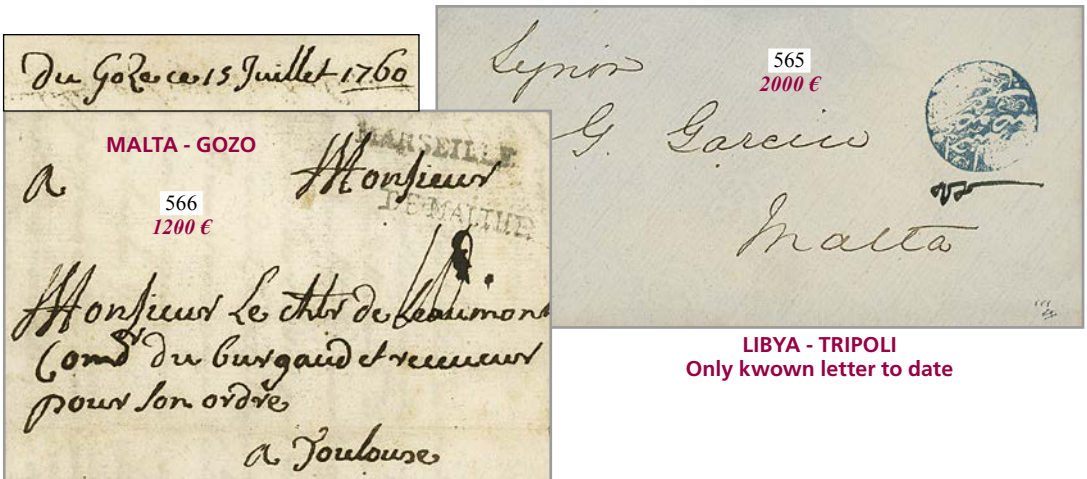 Du Goze ce 15 Juillet 1760
MALTA - GOZO
566
1200 €
MARSEILLE
DE MALTHE
a Monsieur
Monsieur Le chlr de Beaumont
Comdr du burgaud et receveur
pour son ordre
a Toulouse
565
2000 €
Signor
G. Garcin
Malta
LIBYA - TRIPOLI
Only kwown letter to date